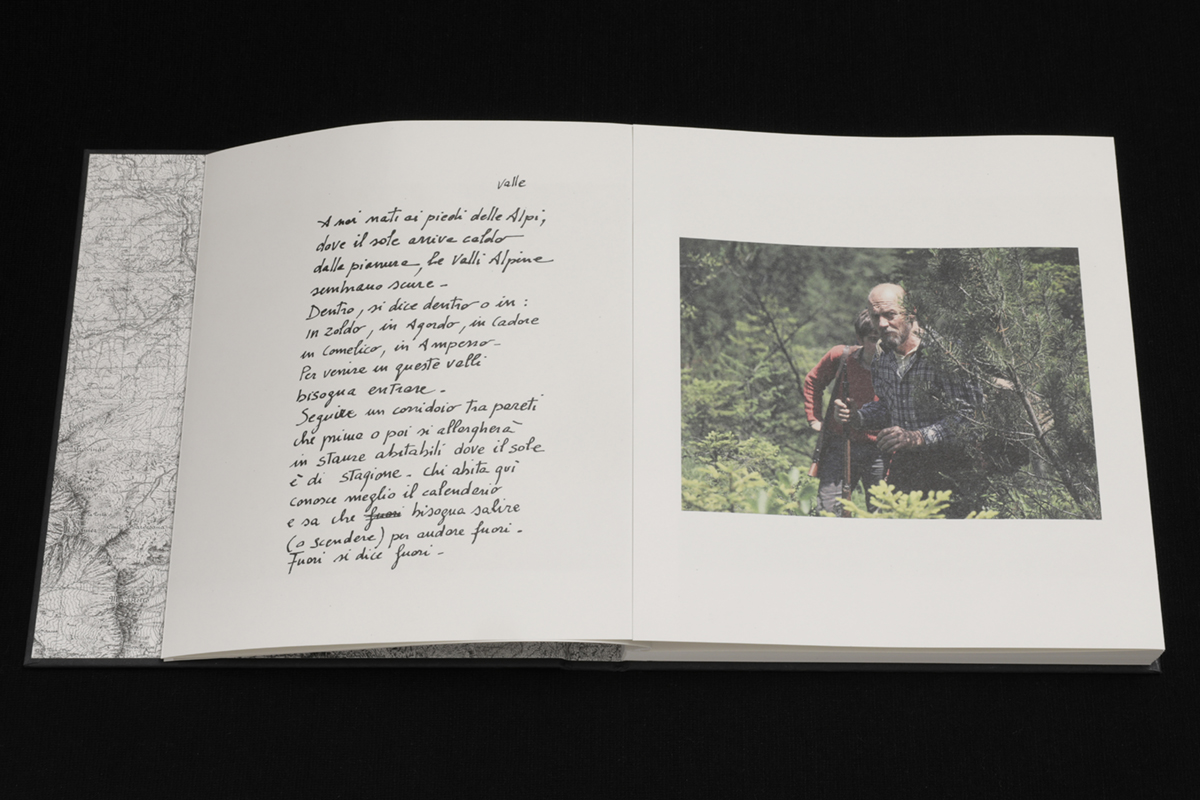 valle
A noi nati ai piedi delle Alpi,
dove il sole arriva caldo
dalla pianura, le Valli Alpine
sembrano scure -
Dentro, si dice dentro o in :
in Zoldo, in Agordo, in Cadore
in Comelico, in Ampezzo -
Per venire in queste valli
bisogna entrare -
Seguire un corridoio tra pareti
che prima o poi si allargherà
in stanze abitabili dove il sole
è di stagione - Chi abita quì
conosce meglio il calendario
e sa che fuori bisogna salire
(o scendere) per andare fuori -
Fuori si dice fuori -